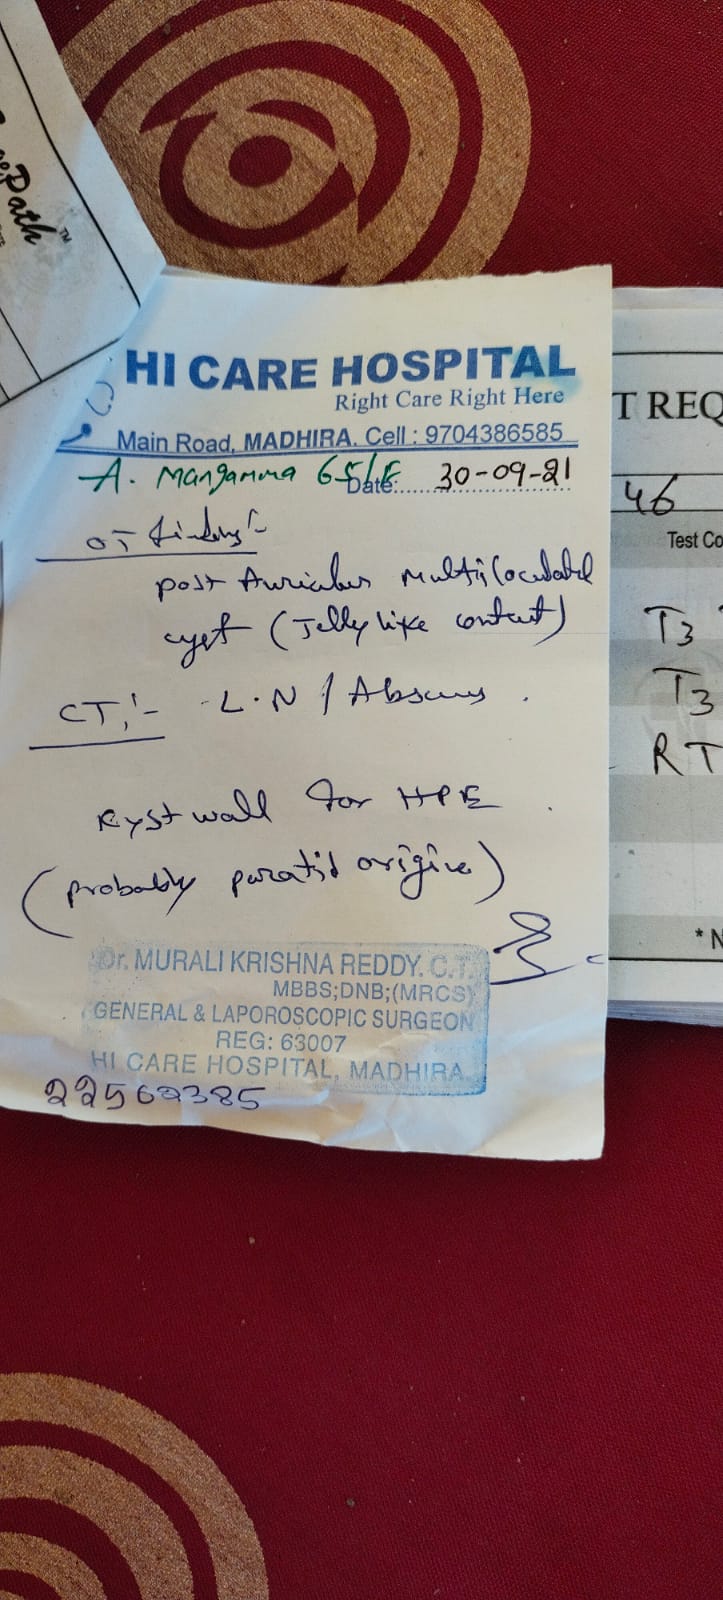 Path™
HI CARE HOSPITAL
Right Care Right Here
Main Road, MADHIRA. Cell : 9704386585
A. Mangamma 65/F Date: 30-09-21
OT findings:-
post Auricular Multiloculated
cyst (Jelly like content)
CT:- L.N / Abscess.
Kyst wall for HPE.
(probably paratid origine)
Dr. MURALI KRISHNA REDDY. C.T.
MBBS;DNB;(MRCS)
GENERAL & LAPOROSCOPIC SURGEON
REG: 63007
HI CARE HOSPITAL, MADHIRA.
22562385
T REQ
46
Test Co
T3
T3
RT
* N